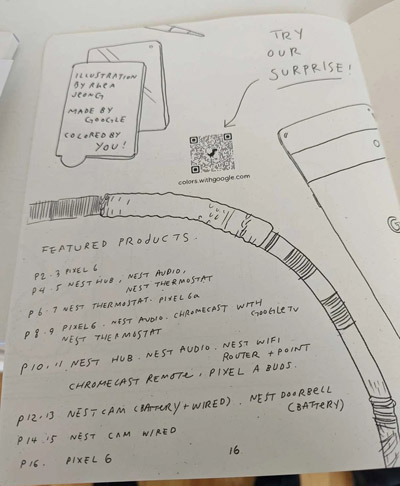 TRY
OUR
SURPRISE!
ILLUSTRATION
BY RARA
JEONG
MADE BY
GOOGLE
COLORED BY
YOU!
colors.withgoogle.com
FEATURED PRODUCTS.
P2.3 PIXEL 6
P4.5 NEST HUB, NEST AUDIO,
NEST THERMOSTAT
P6.7 NEST THERMOSTAT. PIXEL 6a
P8.9 PIXEL 6. NEST AUDIO. CHROMECAST WITH
GOOGLE TV
NEST THERMOSTAT
P10.11 NEST HUB. NEST AUDIO. NEST WIFI
ROUTER + POINT
CHROMECAST REMOTE, PIXEL A BUDS.
P12.13 NEST CAM (BATTERY + WIRED). NEST DOORBELL
(BATTERY)
P14.15 NEST CAM WIRED
P16. PIXEL 6
16
G